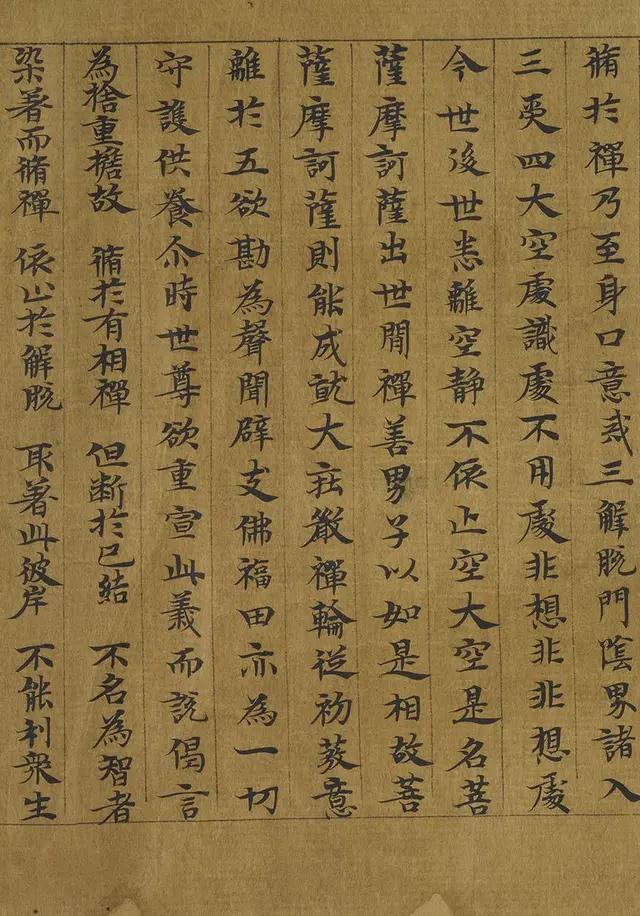 脩於禪乃至身口意戒三解脫門陰界諸入
三受四大空處識處不用處非想非非想處
今世後世悉離空静不依止空大空是名菩
薩摩訶薩出世間禪善男子以如是相故菩
薩摩訶薩則能成就大莊嚴禪輪從初發意
離於五欲勘為聲聞辟支佛福田亦為一切
守護供養尒時世尊欲重宣此義而說偈言
為捨重擔故 脩於有相禪 但斷於已結 不名為智者
染著而脩禪 依止於解脫 取著此彼岸 不能利衆生